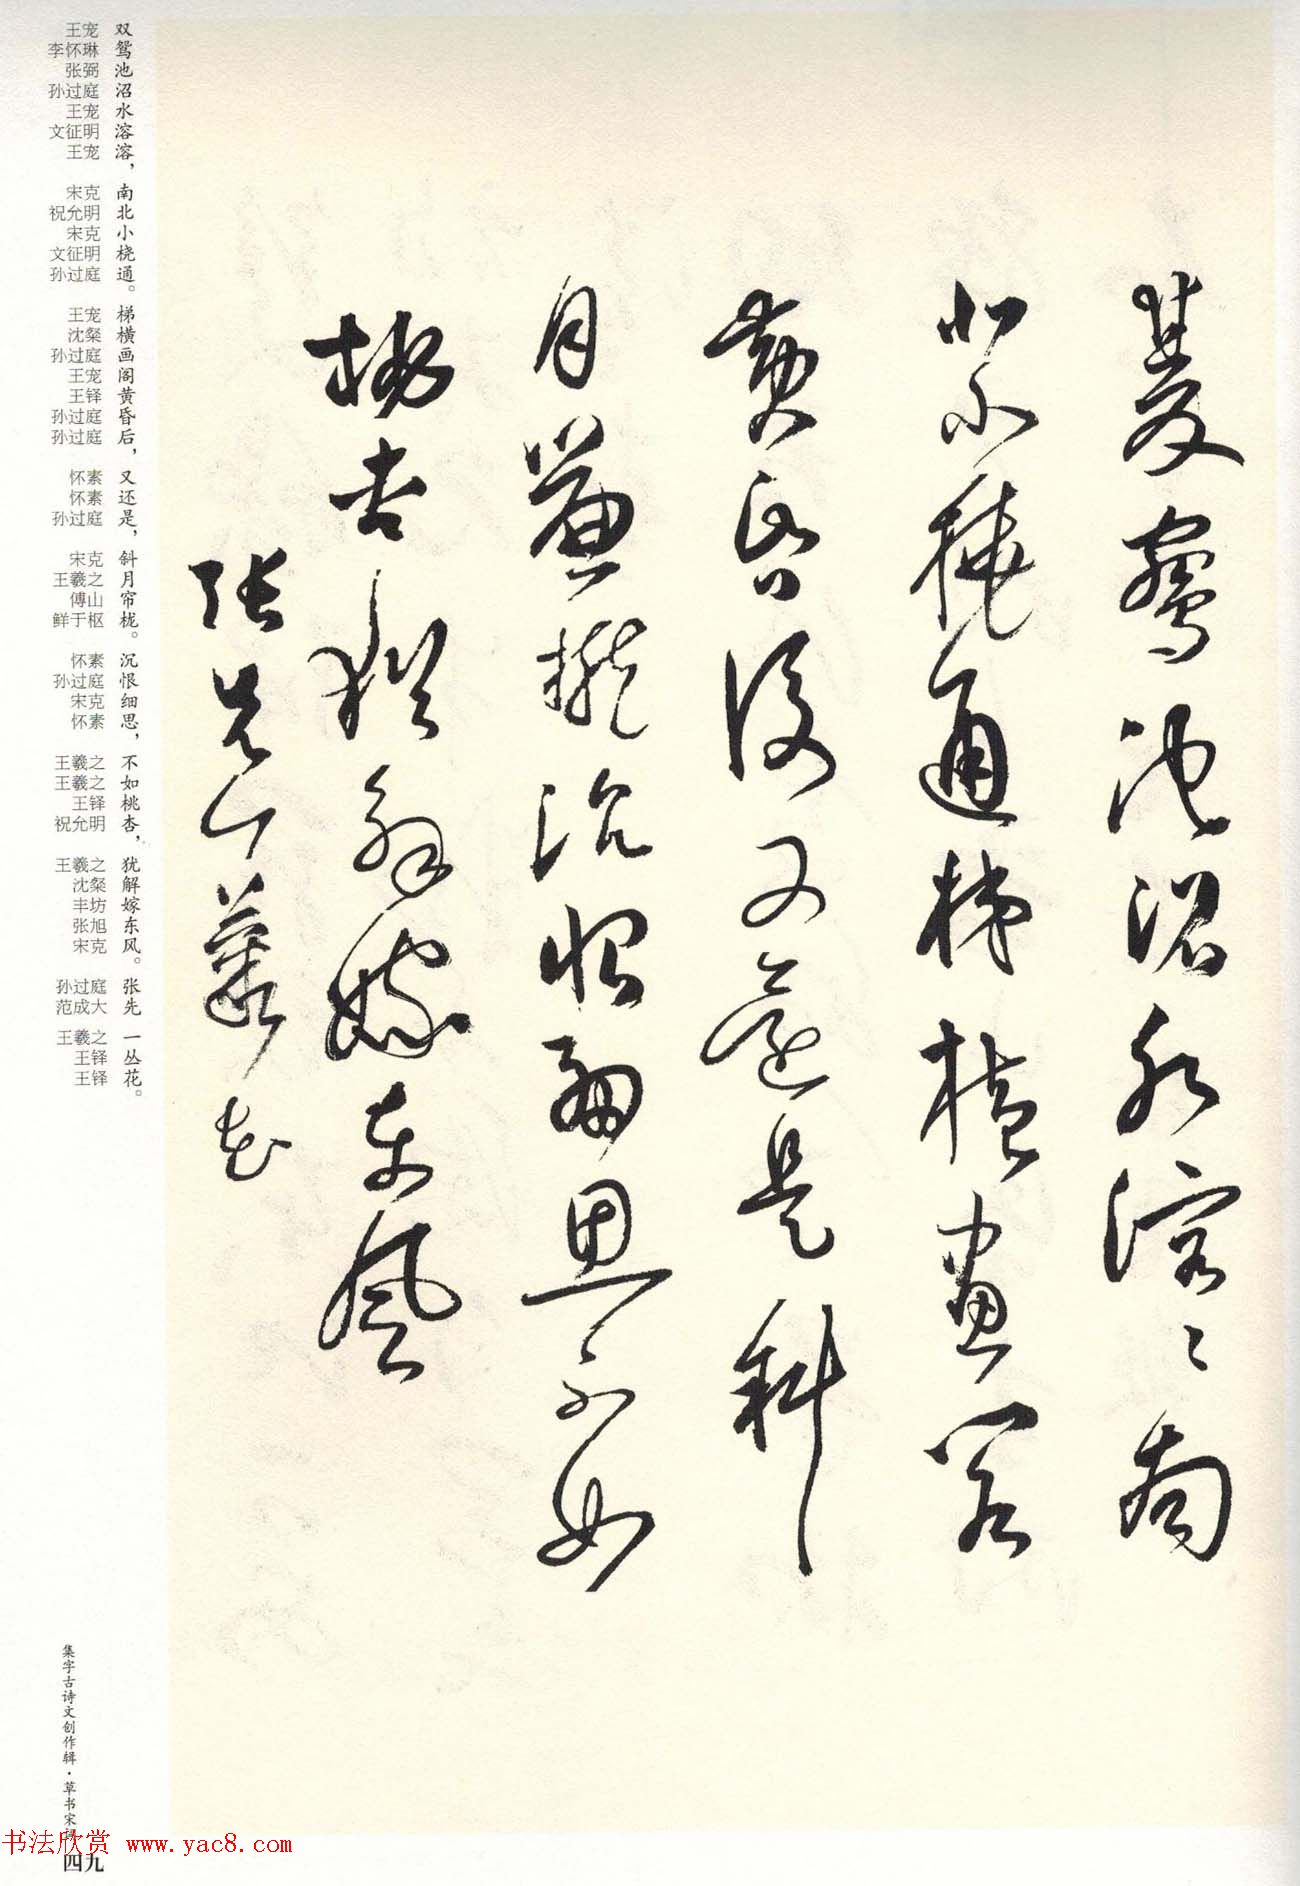 双鸳池沼水溶溶南
北小桡通梯横画阁
黄昏后又还是斜
月帘栊沉恨细思不如
桃杏犹解嫁东风
张先一丛花
双鸳池沼水溶溶，南北小桡通。梯横画阁黄昏后，又还是，斜月帘栊。沉恨细思，不如桃杏，犹解嫁东风。张先 一丛花。
王宠 李怀琳 张弼 孙过庭 王宠 文征明 王宠 宋克 祝允明 宋克 文征明 孙过庭 王宠 沈粲 孙过庭 王宠 王铎 孙过庭 孙过庭 怀素 怀素 孙过庭 宋克 王羲之 傅山 鲜于枢 怀素 孙过庭 宋克 怀素 王羲之 王羲之 王铎 祝允明 王羲之 沈粲 丰坊 张旭 宋克 孙过庭 范成大 王羲之 王铎 王铎
集字古诗文创作辑·草书宋词
书法欣赏 www.yac8.com
四九